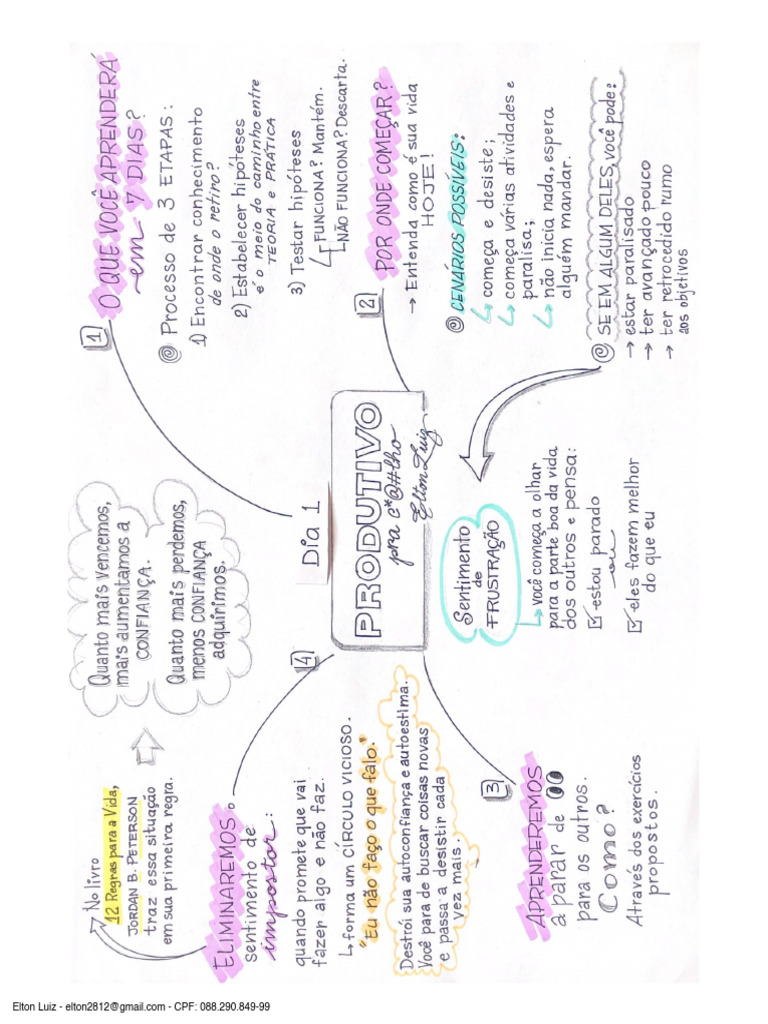 Dia 1
PRODUTIVO
pra c*@#lho
Elton Luiz
1
O QUE VOCÊ APRENDERÁ
em 7 DIAS?
Processo de 3 ETAPAS:
1) Encontrar conhecimento
de onde o retiro?
2) Estabelecer hipóteses
é o meio do caminho entre
TEORIA e PRÁTICA
3) Testar hipóteses
FUNCIONA? Mantém.
NÃO FUNCIONA? Descarta.
2
POR ONDE COMEÇAR?
→ Entenda como é sua vida
HOJE!
CENÁRIOS POSSÍVEIS:
começa e desiste;
começa várias atividades e
paralisa;
não inicia nada, espera
alguém mandar.
SE EM ALGUM DELES, VOCÊ PODE:
→ estar paralisado
→ ter avançado pouco
→ ter retrocedido rumo
aos objetivos
Sentimento
de
FRUSTRAÇÃO
você começa a olhar
para a parte boa da vida
dos outros e pensa:
estou parado
ou
eles fazem melhor
do que eu
3
APRENDEREMOS
a parar de
para os outros.
Como?
Através dos exercícios
propostos.
4
ELIMINAREMOS o
sentimento de
impostor:
quando promete que vai
fazer algo e não faz.
forma um CÍRCULO VICIOSO.
"Eu não faço o que falo."
Destrói sua autoconfiança e autoestima.
Você para de buscar coisas novas
e passa a desistir cada
vez mais.
No livro
12 Regras para a Vida,
JORDAN B. PETERSON
traz essa situação
em sua primeira regra.
Quanto mais vencemos,
mais aumentamos a
CONFIANÇA.
Quanto mais perdemos,
menos CONFIANÇA
adquirimos.
Elton Luiz - elton2812@gmail.com - CPF: 088.290.849-99